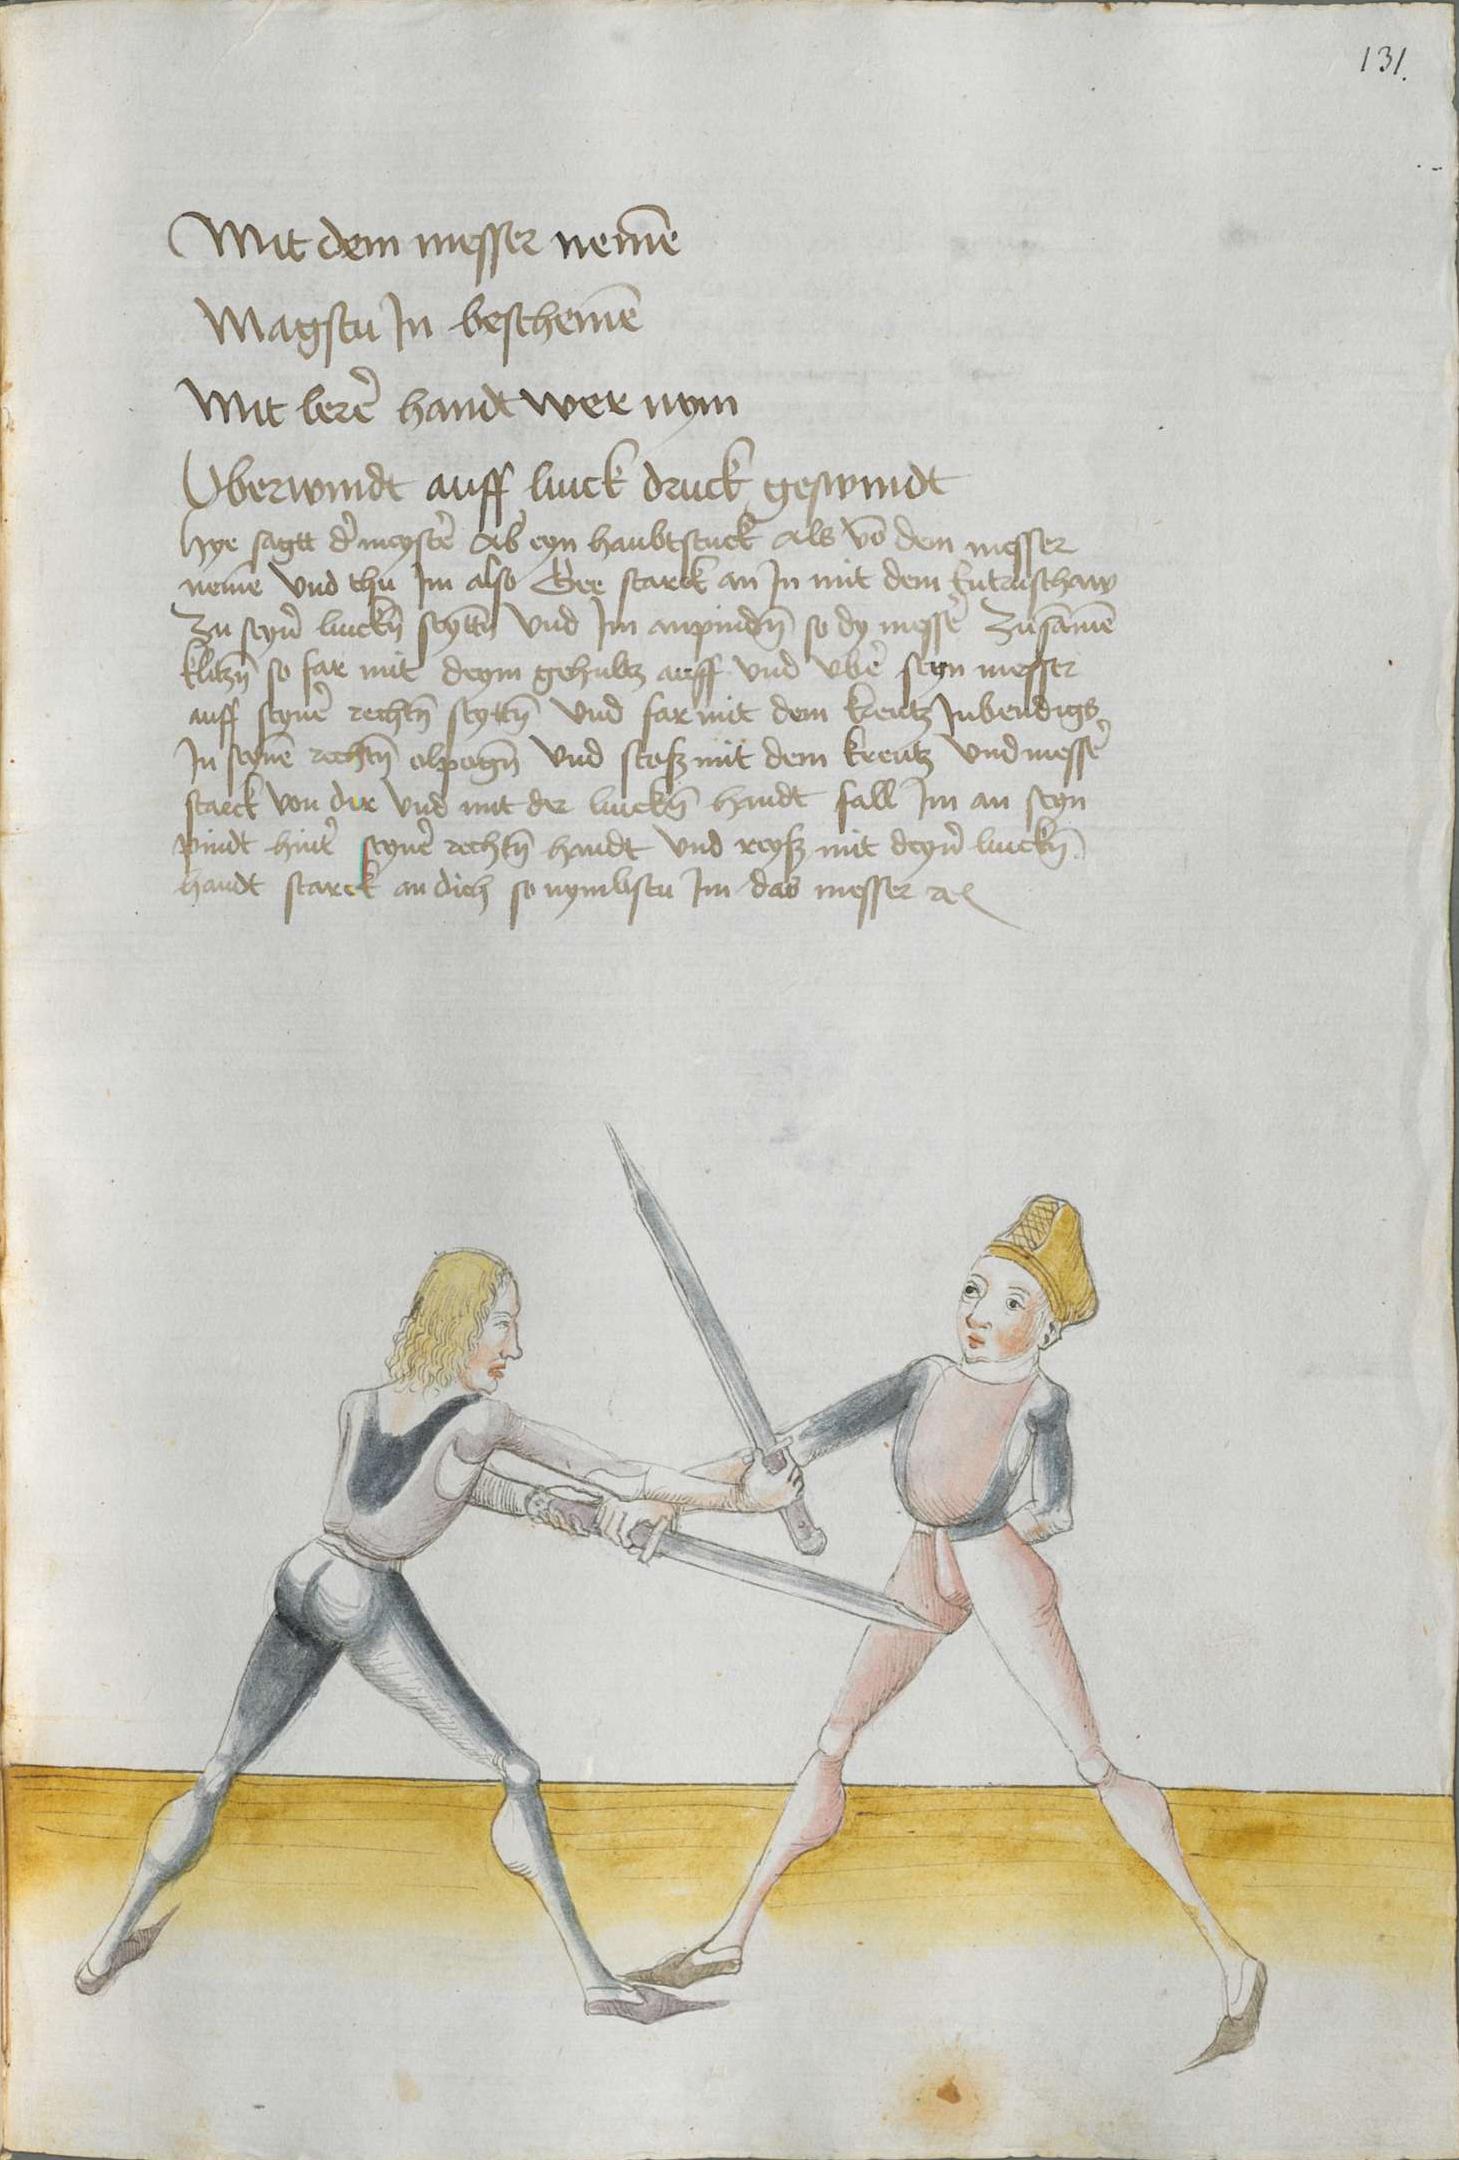 131.
Mit dem messer nemē
Magstu In beschemē
Mit lerē handt wer nym
Vberwindt auff linck druck geswindt
Hye sagtt d̉ meystē Ab̉ eyn haubtstuck Als vō dem messer
nemē vnd thu Im also Gee starck an In mit dem Entrusthaw
Zu seyn̉ linckn̄ seyttn̄ vnd Im anpindn̄ so dy messē zusāmē
klitzn̄ so far mit deym gehultz auff vnd vbē seyn messer
auff seynē rechtn̄ seyttn̄ vnd far mit dem kreutz Inbendigs
In seynē rechtn̄ elpogn̄ vnd stoß mit dem kreutz vnd messē
starck von dir vnd mit der linckn̄ handt fall Im an seyn
pindt hint̉ seynē rechtn̄ handt vnd reyß mit deyn̉ linckn̄
handt starck an dich so nymbstu Im das messer ꝛc